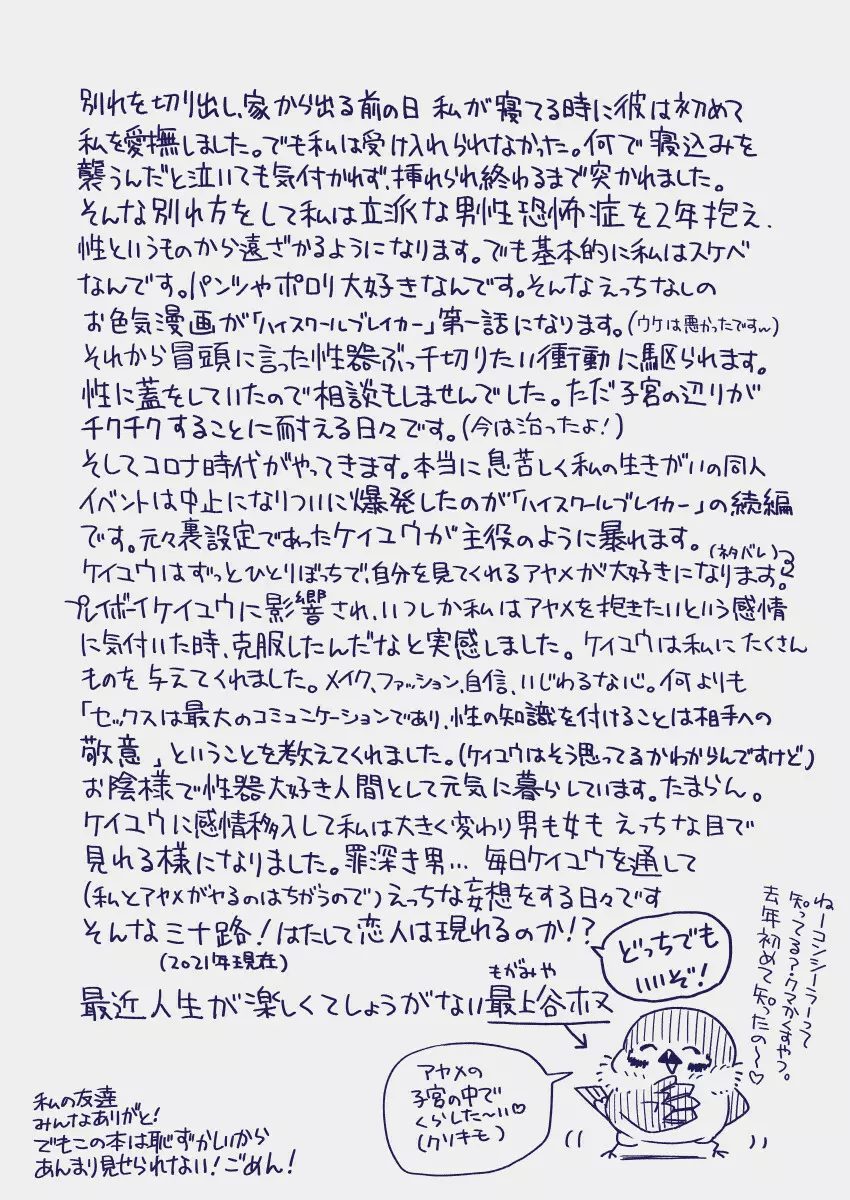 別れを切り出し、家から出る前の日 私が寝てる時に彼は初めて
私を愛撫しました。でも私は受け入れられなかった。何で寝込みを
襲うんだと泣いても気付かれず、挿れられ終わるまで突かれました。
そんな別れ方をして私は立派な男性恐怖症を2年抱え、
性というものから遠ざかるようになります。でも基本的に私はスケベ
なんです。パンツやポロリ大好きなんです。そんなえっちなしの
お色気漫画が「ハイスクールブレイカー」第一話になります。(ウケは悪かったですﾍ)
それから冒頭に言った性器ぶっ千切りたい衝動に駆られます。
性に蓋をしていたので相談もしませんでした。ただ子宮の辺りが
チクチクすることに耐える日々です。(今は治ったよ!)
そしてコロナ時代がやってきます。本当に息苦しく私の生きがいの同人
イベントは中止になりついに爆発したのが「ハイスクールブレイカー」の続編
です。元々裏設定であったケイユウが主役のように暴れます。
(ネタバレ)
ケイユウはずっとひとりぼっちで、自分を見てくれるアヤメが大好きになります。
プレイボーイケイユウに影響され、いつしか私はアヤメを抱きたいという感情
に気付いた時、克服したんだなと実感しました。ケイユウは私にたくさん
ものを与えてくれました。メイク、ファッション、自信、いじわるな心。何よりも
「セックスは最大のコミュニケーションであり、性の知識を付けることは相手への
敬意」ということを教えてくれました。(ケイユウはそう思ってるかわからんですけど)
お陰様で性器大好き人間として元気に暮らしています。たまらん。
ケイユウに感情移入して私は大きく変わり男も女もえっちな目で
見れる様になりました。罪深き男… 毎日ケイユウを通して
(私とアヤメがヤるのはちがうので)えっちな妄想をする日々です
そんなミナ路!はたして恋人は現れるのか!?
(2021年現在)
どっちでも
いいぞ!
もがみや
最近人生が楽しくてしょうがない最上谷ホヌ
ねーコンシーラーって
知ってる?クマかくすやつ。
去年初めて知ったの〜♡
アヤメの
子宮の中で
くらした〜い♡
(クソキモ)
私の友達
みんなありがと!
でもこの本は恥ずかしいから
あんまり見せられない!ごめん!